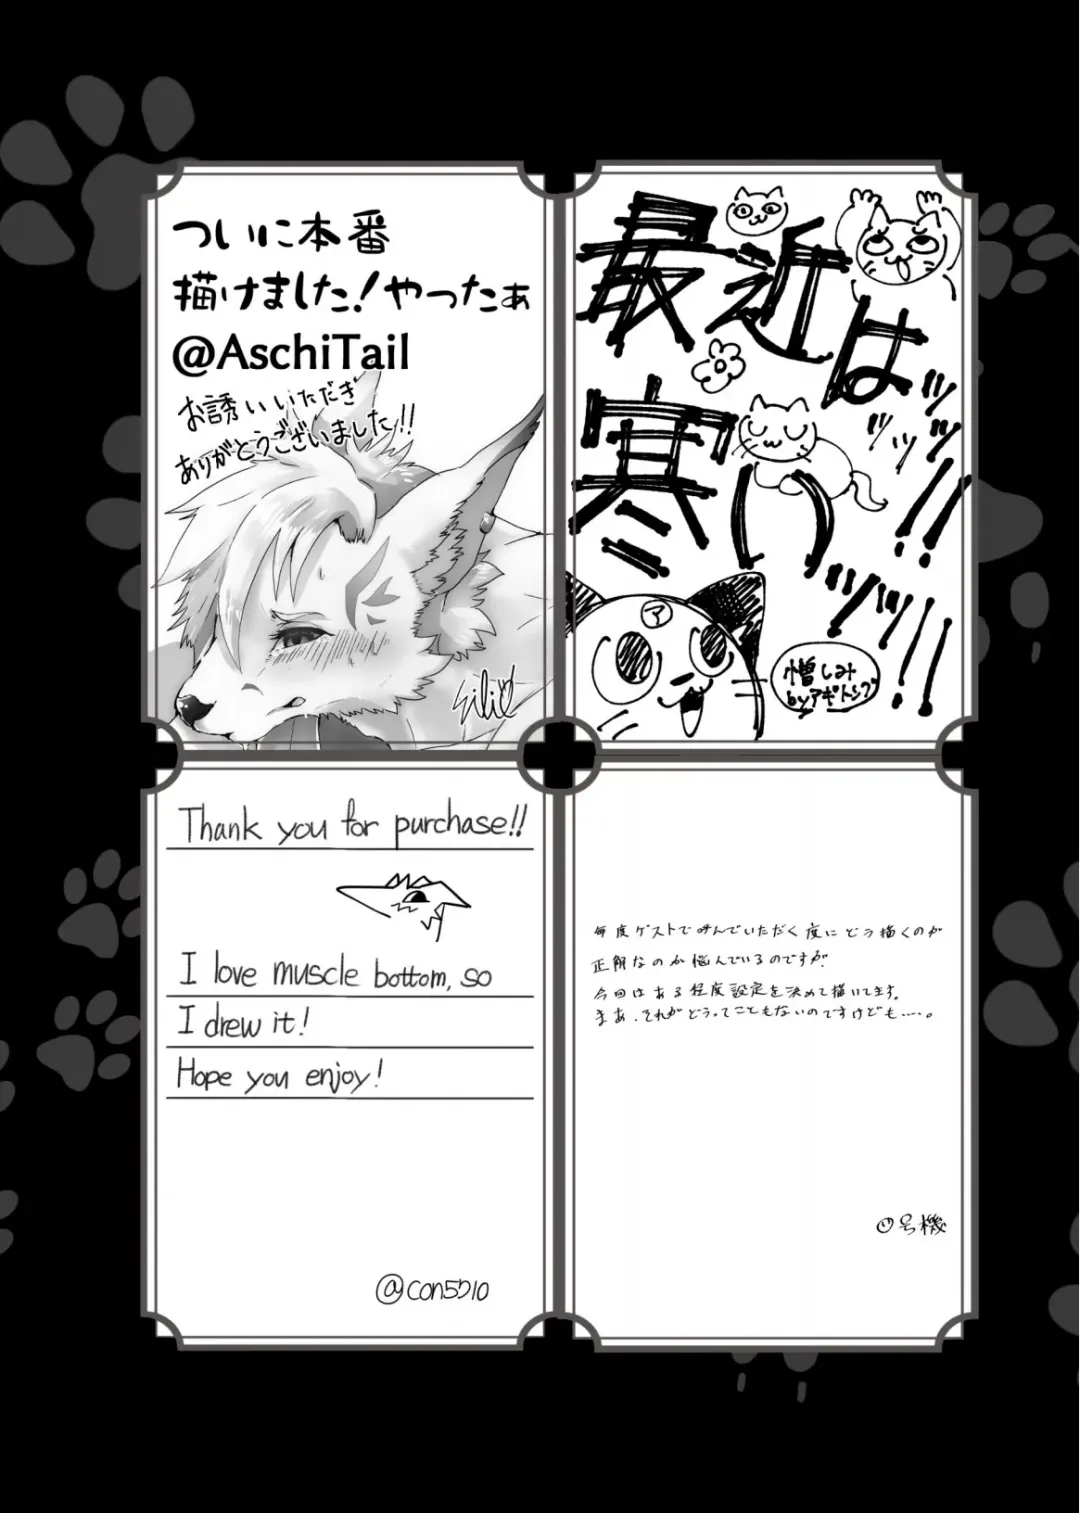 ついに本番
描けました!やったぁ
@AschiTail
お誘いいただき
ありがとうございました!!
最近は
寒いッ!!
マ
憎しみ
byアギトング
Thank you for purchase!!
I love muscle bottom, so
I drew it!
Hope you enjoy!
@con5710
毎度ゲストで呼んでいただく度にどう描くのが
正解なのか悩んでいるのですが、
今回はある程度設定を決めて描いてます。
まあ、それがどうってこともないのですけども……。
号機